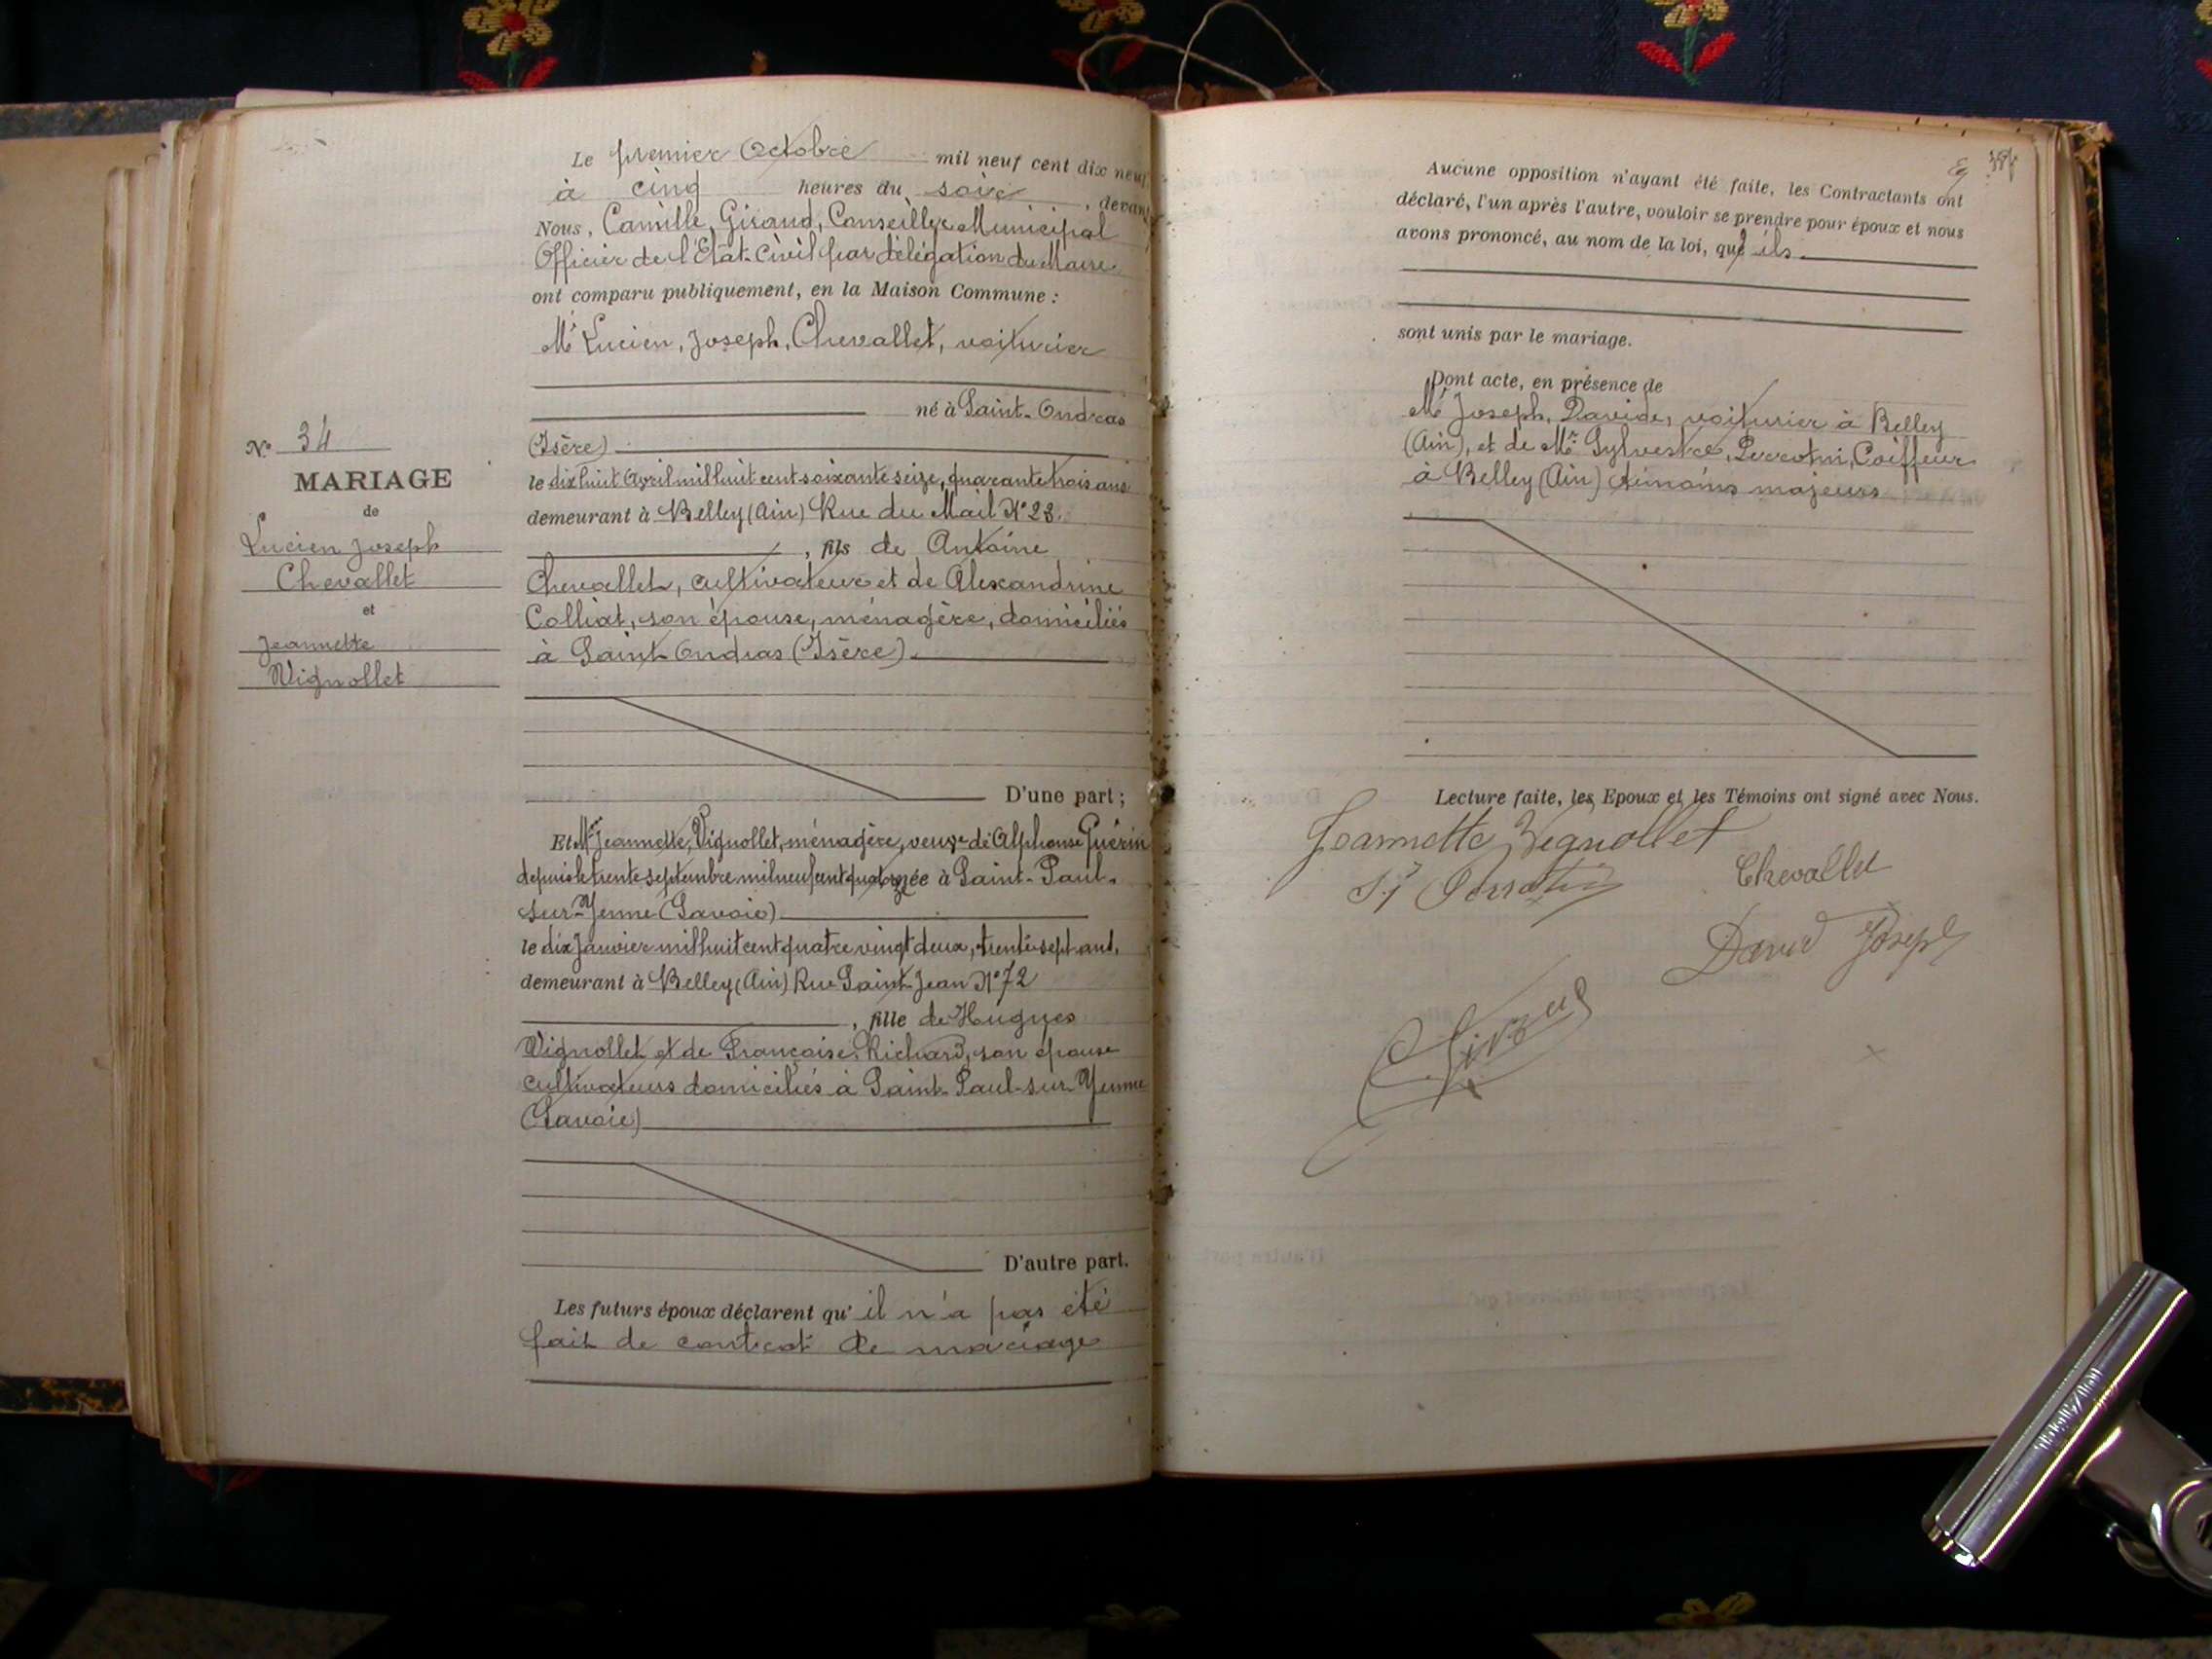 N° 34
MARIAGE
de
Lucien Joseph
Chevallet
et
Jeannette
Vignollet
Le premier Octobre mil neuf cent dix neuf
à cinq heures du soir, devant
Nous, Camille, Giraud, Conseiller Municipal
Officier de l'Etat-Civil par délégation du Maire
ont comparu publiquement, en la Maison Commune :
Mr Lucien, Joseph, Chevallet, voiturier
né à Saint-Ondras
(Isère)
le dix huit Avril mil huit cent soixante seize, quarante trois ans
demeurant à Belley (Ain) Rue du Mail N° 23.
, fils de Antoine
Chevallet, cultivateur et de Alexandrine
Colliat, son épouse, ménagère, domiciliés
à Saint Ondras (Isère).
D'une part ;
Et Mme Jeannette, Vignollet, ménagère, veuve de Alphonse Guérin
depuis le trente septembre mil neuf cent quatorze née à Saint-Paul-
sur-Yenne (Savoie)
le dix Janvier mil huit cent quatre vingt deux, trente sept ans,
demeurant à Belley (Ain) Rue Saint Jean N° 72
, fille de Hugues
Vignollet et de Françoise, Richard, son épouse
cultivateurs domiciliés à Saint-Paul-sur Yenne
(Savoie)
D'autre part.
Les futurs époux déclarent qu' il n'a pas été
fait de contrat de mariage
Aucune opposition n'ayant été faite, les Contractants ont
déclaré, l'un après l'autre, vouloir se prendre pour époux et nous
avons prononcé, au nom de la loi, que ils
sont unis par le mariage.
Dont acte, en présence de
Mr Joseph, David, voiturier à Belley
(Ain), et de Mr Sylvestre, Perrotin, Coiffeur
à Belley (Ain) témoins majeurs
Lecture faite, les Epoux et les Témoins ont signé avec Nous.
Jeannette Vignollet
Chevallet
Sy Perrotin
David Joseph
C Giraud